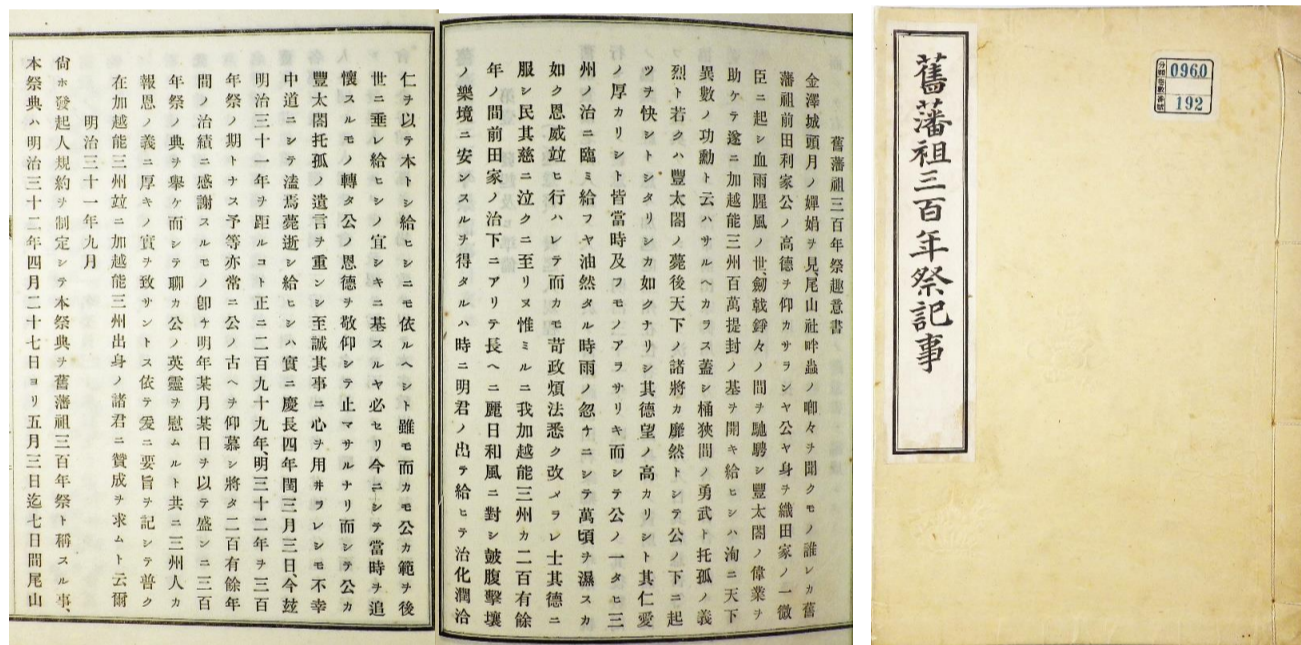 舊藩祖三百年祭記事
分類
卷數
番號
0960
192
舊藩祖三百年祭趣意書
金澤城頭月ノ嬋娟ヲ見、尾山社畔蟲ノ喞々ヲ聞クモノ誰レカ舊
藩祖前田利家公ノ高德ヲ仰カサラシヤ公ヤ身ヲ織田家ノ一微
臣ニ起シ血雨腥風ノ世、劒戟錚々ノ間ヲ馳騁シ豐太閤ノ偉業ヲ
助ケテ遂ニ加越能三州百萬提封ノ基ヲ開キ給ヒシハ洵ニ天下
異數ノ功勳ト云ハサルヘカラス蓋シ桶狹間ノ勇武ト托孤ノ義
烈ト若クハ豐太閤ノ薨後天下ノ諸將カ靡然トシテ公ノ下ニ起
ツヲ快シトシタリシカ如クナリシ其德望ノ高カリシト其仁愛
ノ厚カリシト皆當時及フモノアラサリキ而シテ公ノ一タヒ三
州ノ治ニ臨ミ給フヤ油然タル時雨ノ忽ケニシテ萬頃ヲ濕スカ
如ク恩威竝ヒ行ハレテ而カモ苛政煩法悉ク改メラレ士其德ニ
服シ民其慈ニ泣クニ至リヌ惟ミルニ我加越能三州カ二百有餘
年ノ間前田家ノ治下ニアリテ長ヘニ麗日和風ニ對シ皷腹擊壤
ノ樂境ニ安ンスルヲ得タルハ時ニ明君ノ出テ給ヒテ治化潤洽
仁ヲ以テ本トシ給ヒシニモ依ルヘシト雖モ而カモ公カ範ヲ後
世ニ垂レ給ヒシノ宜シキニ基スルヤ必セリ今ニシテ當時ヲ追
懷スルモノ轉タ公ノ恩德ヲ敬仰シテ止マサルナリ而シテ公カ
豐太閤托孤ノ遺言ヲ重ンシ至誠其事ニ心ヲ用井ラレシモ不幸
中道ニシテ溘焉薨逝シ給ヒシハ實ニ慶長四年閏三月三日、今玆
明治三十一年ヲ距ルコト正ニ二百九十九年、明三十二年ヲ三百
年祭ノ期トナス予等亦常ニ公ノ古ヘヲ仰慕シ將タ二百有餘年
間ノ治績ニ感謝スルモノ卽ケ明年某月某日ヲ以テ盛ンニ三百
年祭ノ典ヲ擧ケ而シテ聊カ公ノ英靈ヲ慰ムルト共ニ三州人カ
報恩ノ義ニ厚キノ實ヲ致サントス依テ爰ニ要旨ヲ記シテ普ク
在加越能三州竝ニ加越能三州出身ノ諸君ニ贊成ヲ求ムト云爾
明治三十一年九月
尙ホ發起人規約ヲ制定シテ本祭典ヲ舊藩祖三百年祭ト稱スル事、
本祭典ハ明治三十二年四月二十七日ヨリ五月三日迄七日間尾山